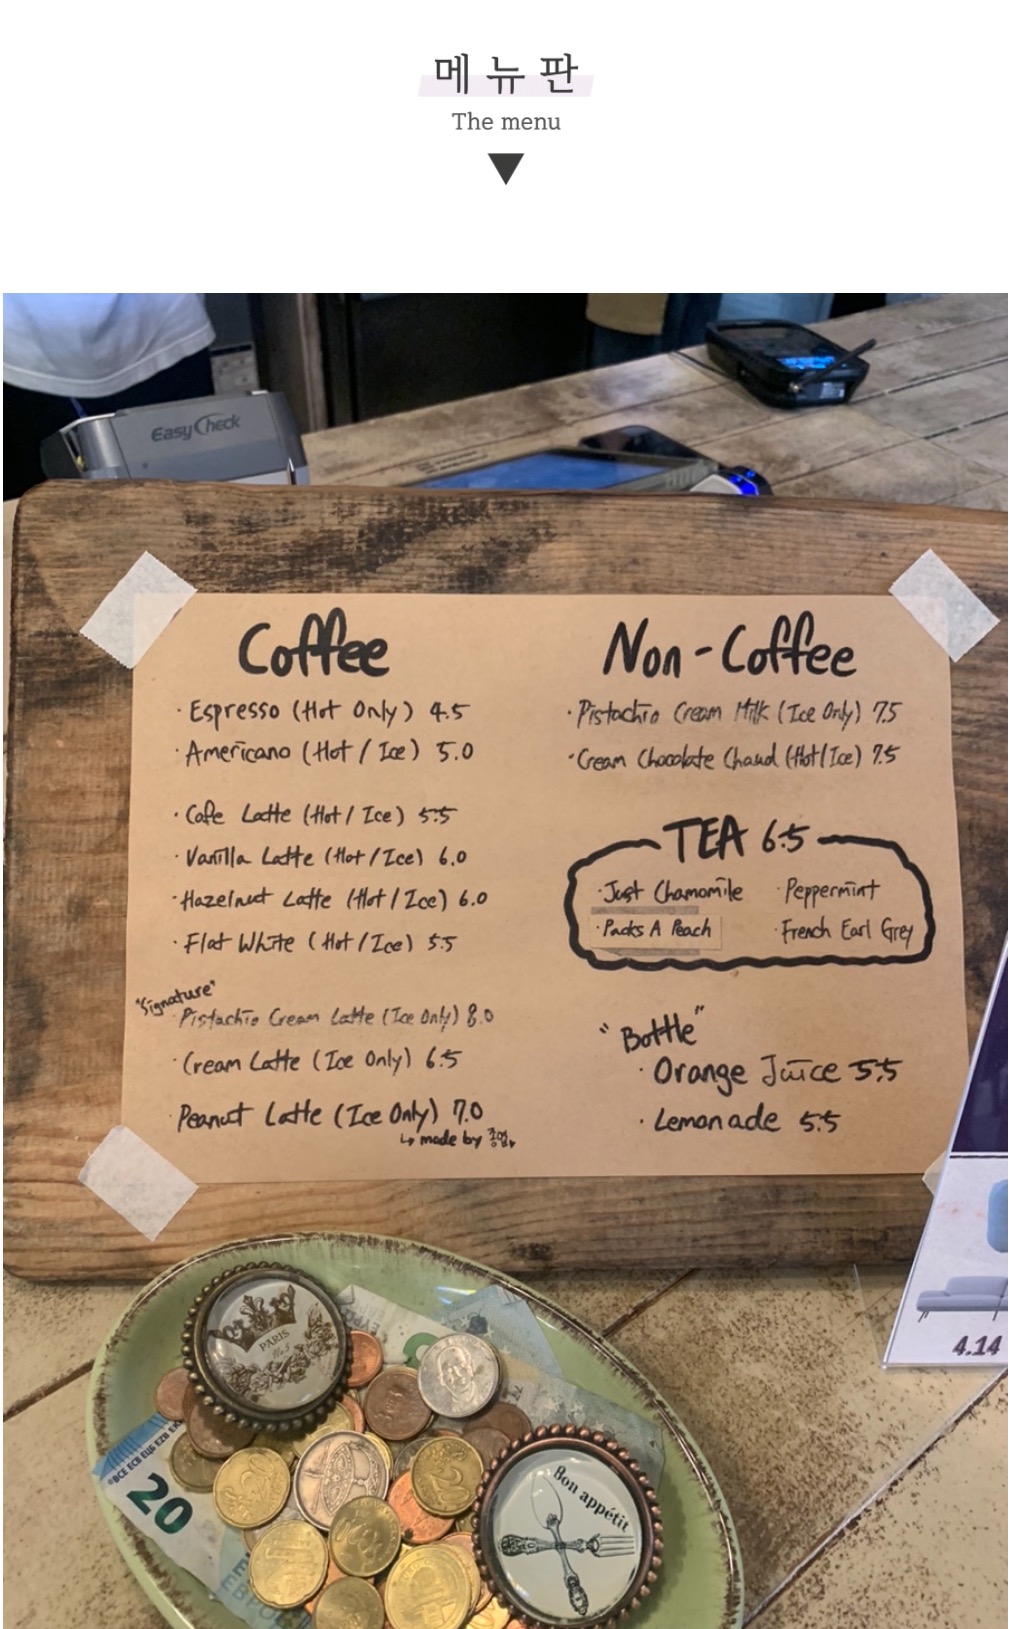 메뉴판
The menu
Easy Check
Coffee
· Espresso (Hot Only) 4.5
· Americano (Hot / Ice) 5.0
· Cafe Latte (Hot / Ice) 5.5
· Vanilla Latte (Hot / Ice) 6.0
· Hazelnut Latte (Hot / Ice) 6.0
· Flat White (Hot / Ice) 5.5
"Signature"
· Pistachio Cream Latte (Ice Only) 8.0
· Cream Latte (Ice Only) 6.5
Peanut Latte (Ice Only) 7.0
↳ made by
Non-Coffee
· Pistachio Cream Milk (Ice Only) 7.5
· Cream Chocolate Chaud (Hot/Ice) 7.5
TEA 6.5
· Just Chamomile · Peppermint
· Packs A Peach · French Earl Grey
"Bottle"
· Orange Juice 5.5
· Lemonade 5.5
4.14
PARIS
20
20
Bon appétit